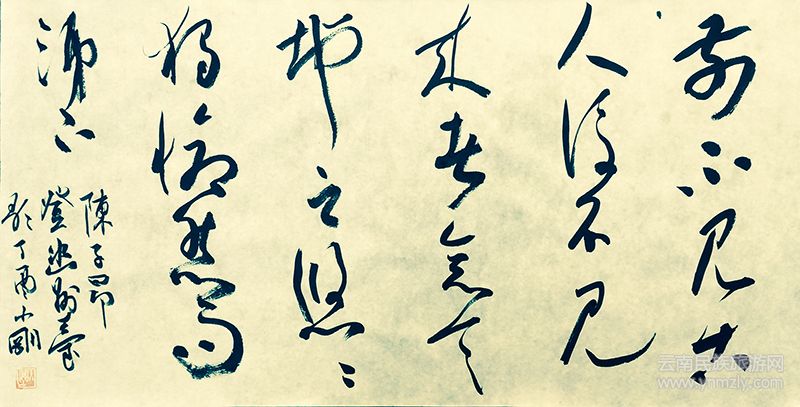 前不見古
人後不見
来者念天
地之悠々
獨愴然而
涕下
陳子昂
登幽州臺
歌丁酉小剛
云南民族旅游网
www.ynmzly.com